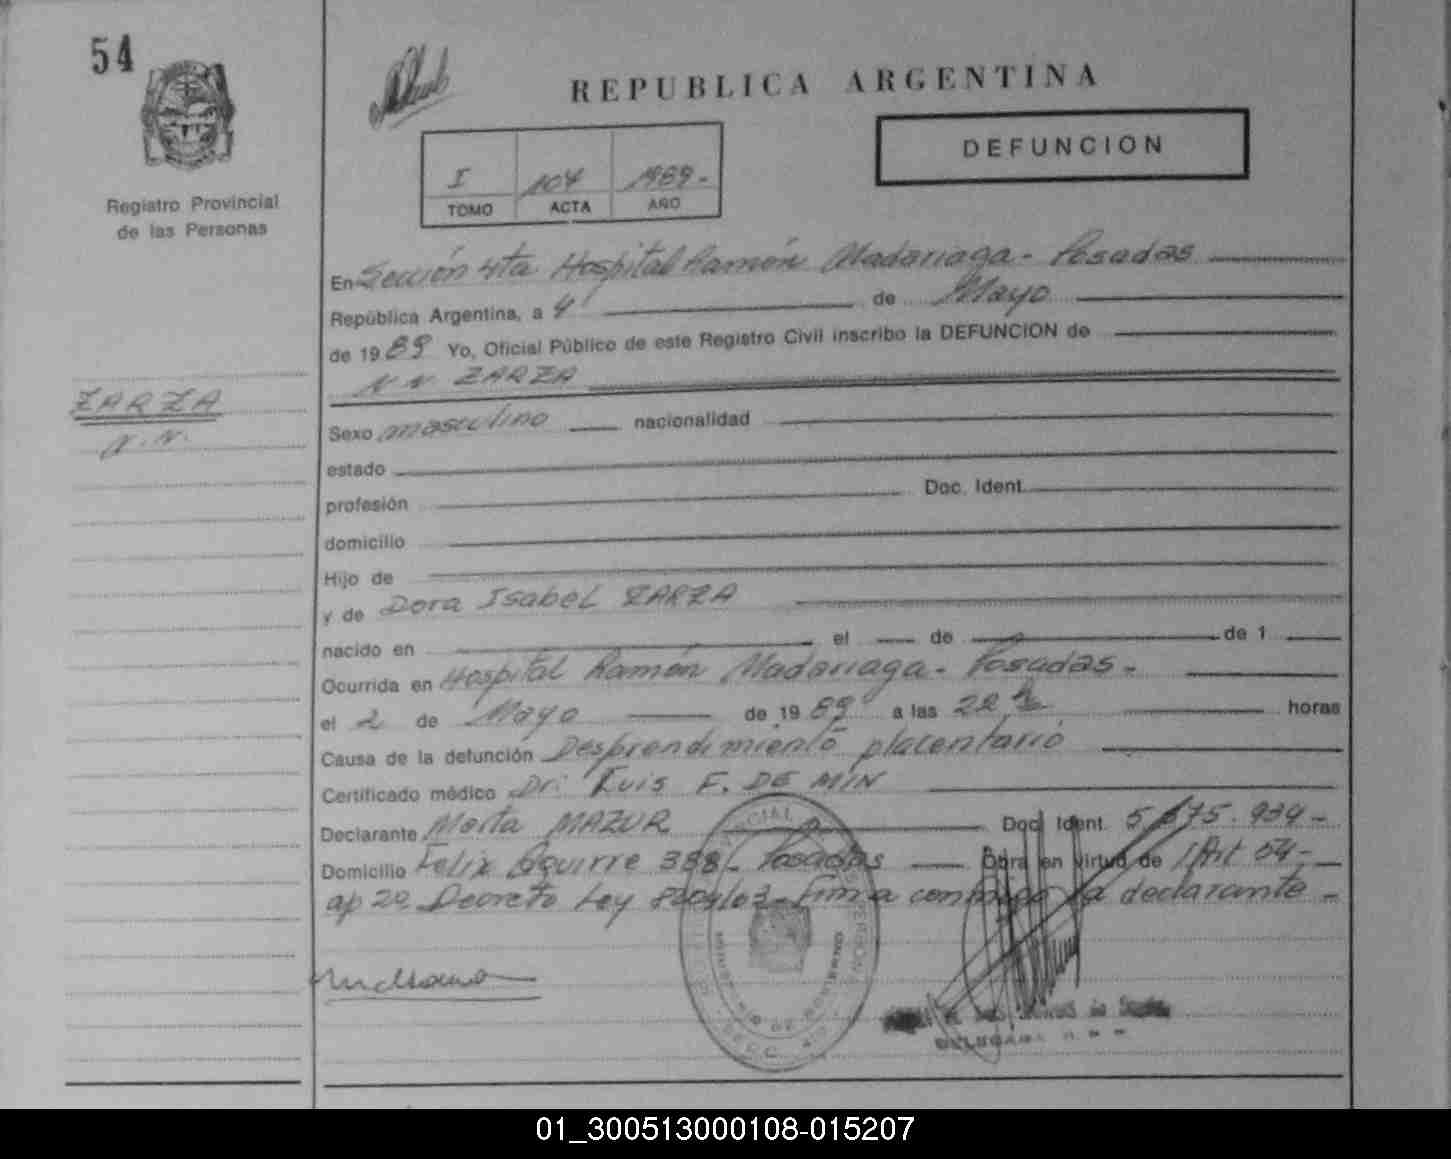 54
REPUBLICA ARGENTINA
DEFUNCION
I 104 1989-
TOMO ACTA AÑO
Registro Provincial
de las Personas
En Sección 4ta Hospital Ramón Madariaga - Posadas
República Argentina, a 4 de Mayo
de 1989 Yo, Oficial Público de este Registro Civil inscribo la DEFUNCION de
N N ZARZA
ZARZA
N. N.
Sexo masculino nacionalidad
estado
profesión Doc. Ident.
domicilio
Hijo de
y de Dora Isabel ZARZA
nacido en el de de 1
Ocurrida en Hospital Ramón Madariaga - Posadas -
el 2 de Mayo de 1989 a las 22 horas
Causa de la defunción Desprendimiento placentario
Certificado médico Dr. Luis F. DE MIN
Declarante Marta MAZUR Doc. Ident. 5.675.939-
Domicilio Felix Aguirre 388 - Posadas Obra en virtud de Art 54-
ap 2º Decreto Ley firma conmigo la declarante -
01_300513000108-015207